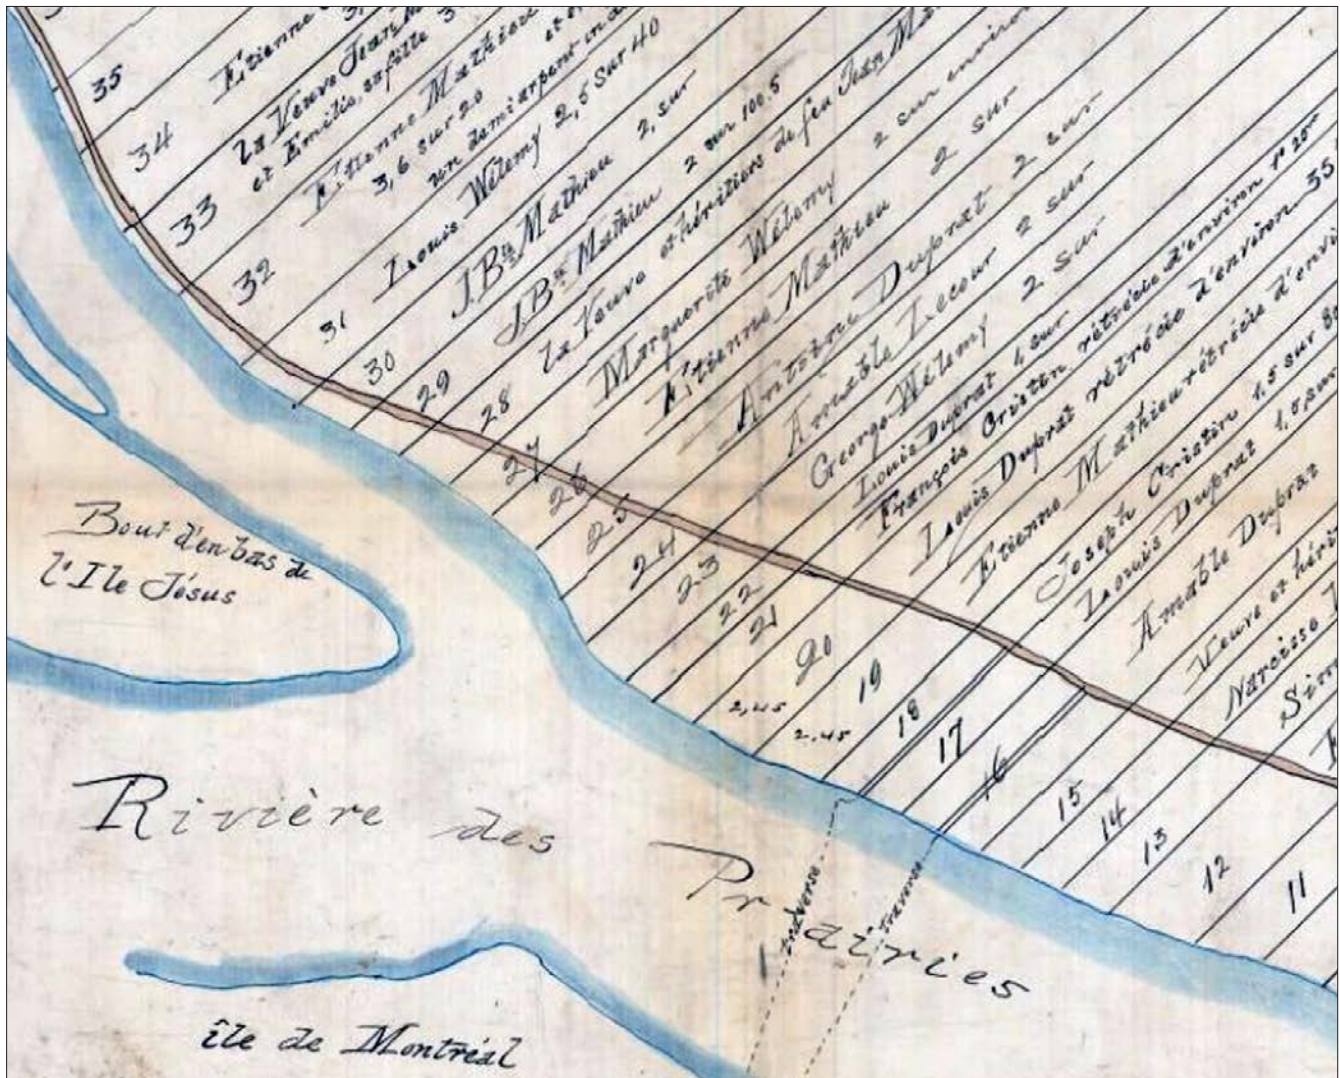 35
Étienne
34
la Veuve Jean
et Emilie, sa fille
33
Étienne Mathieu
3,6 sur 20
un demi arpent
32
Louis Wélemy 2,5 sur 40
31
J. Bte Mathieu 2, sur
30
J. Bte Mathieu 2 sur 100.5
29
la Veuve et héritiers de feu Jean
28
Marguerite Wélemy 2 sur environ
27
Étienne Mathieu 2 sur
26
Antoine Duprat 2 sur
25
Amable Lecour 2 sur
24
George Wélemy 2 sur
23
Louis Duprat 1, sur
22
François Cristin rétrécie d'environ
21
Louis Duprat rétrécie d'environ 35
20
Etienne Mathieu rétrécie d'envi
19
Joseph Cristin 1.5 sur
18
Louis Duprat 1,5 sur
17
Amable Duprat
16
Veuve et héri
15
Narcisse
14
Sim
13
12
11
2,45
2.45
Bout d'en bas de
l'Ile Jésus
Rivière des
Prairies
traverse
traverse
île de Montréal